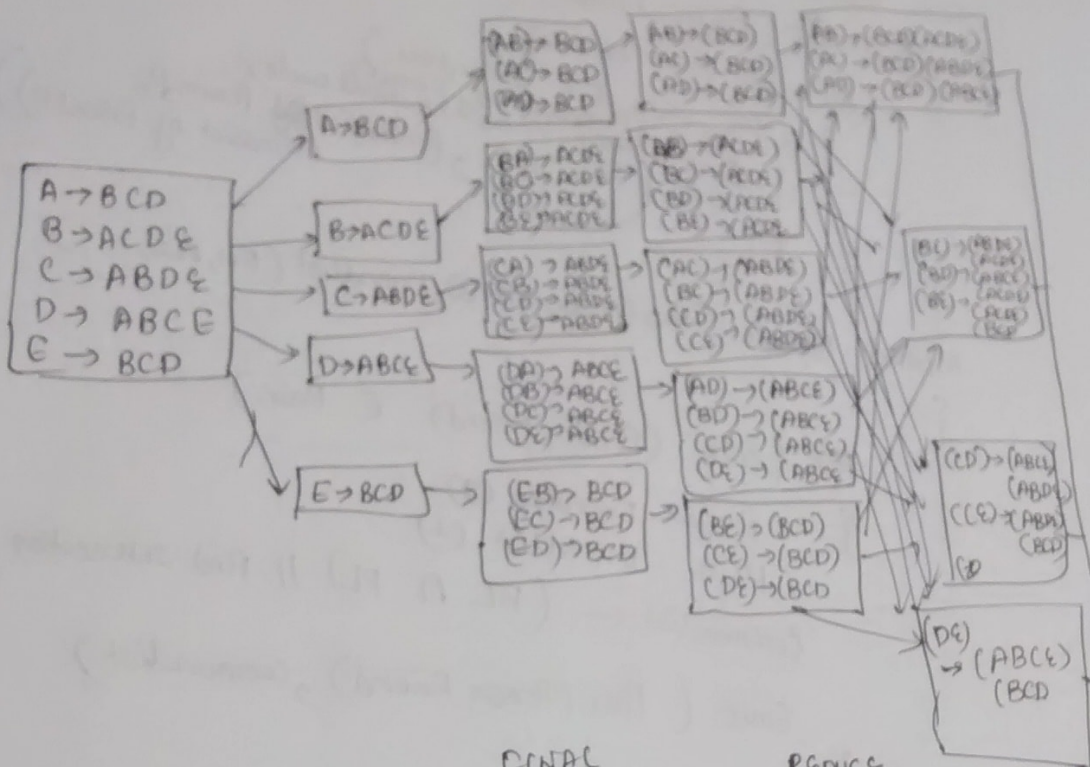 A → BCD
B → ACDE
C → ABDE
D → ABCE
E → BCD
A→BCD
B→ACDE
C→ABDE
D→ABCE
E→BCD
(AB)→ BCD
(AC)→ BCD
(AD)→ BCD
(BA)→ ACDE
(BC)→ ACDE
(BD)→ ACDE
(BE)→ ACDE
(CA) → ABDE
(CB)→ ABDE
(CD)→ ABDE
(CE)→ABDE
(DA)→ ABCE
(DB)→ABCE
(DC)→ ABCE
(DE)→ABCE
(EB)→ BCD
(EC)→BCD
(ED)→BCD
(AB)→(BCD)
(AC)→(BCD)
(AD)→(BCD)
(AB)→(ACDE)
(BC)→(ACDE)
(BD)→(ACDE
(BE)→(ACDE
(AC)→(ABDE)
(BC)→(ABDE)
(CD)→(ABDE)
(CE)→(ABDE)
(AD)→(ABCE)
(BD)→(ABCE)
(CD)→(ABCE)
(DE)→(ABCE
(BE)→(BCD)
(CE)→(BCD)
(DE)→(BCD
(AB)→(BCD)(ACDE)
(AC)→(BCD)(ABDE)
(AD)→(BCD)(ABCE)
(BC)→(ABDE)
(ACDE)
(BD)→(ABCE)
(ACDE)
(BE)→(ACDE)
(BCD
(CD)→(ABCE)
(ABDE)
(CE)→(ABDE)
(BCD)
(DE)
→(ABCE)
(BCD